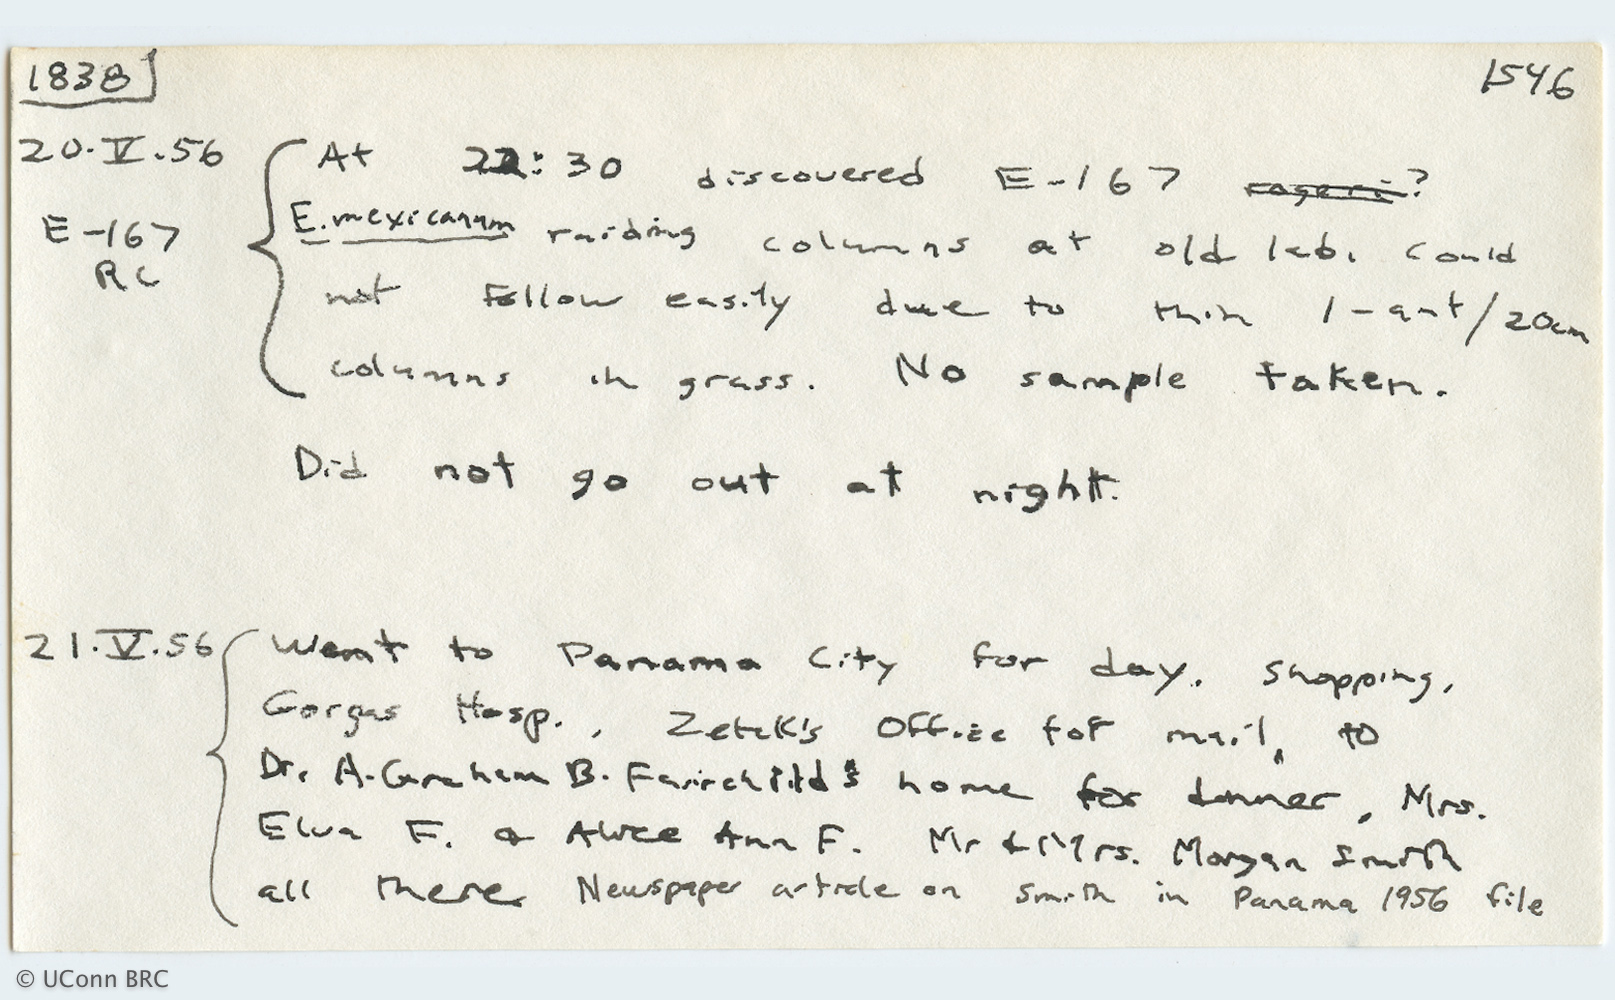 1838 1546
20.V.56 At 22:30 discovered E-167 rogeri?
E. mexicanum raiding columns at old lab. Could
E-167
RC
not follow easily due to thin 1-ant/20cm
columns in grass. No sample taken.
Did not go out at night.
21.V.56 Went to Panama City for day. Shopping,
Gorgas Hosp., Zetek's Office for mail, to
Dr. A. Graham B. Fairchild's home for dinner, Mrs.
Elva F. & Alice Ann F. Mr & Mrs. Morgan Smith
all there Newspaper article on Smith in Panama 1956 file
© UConn BRC